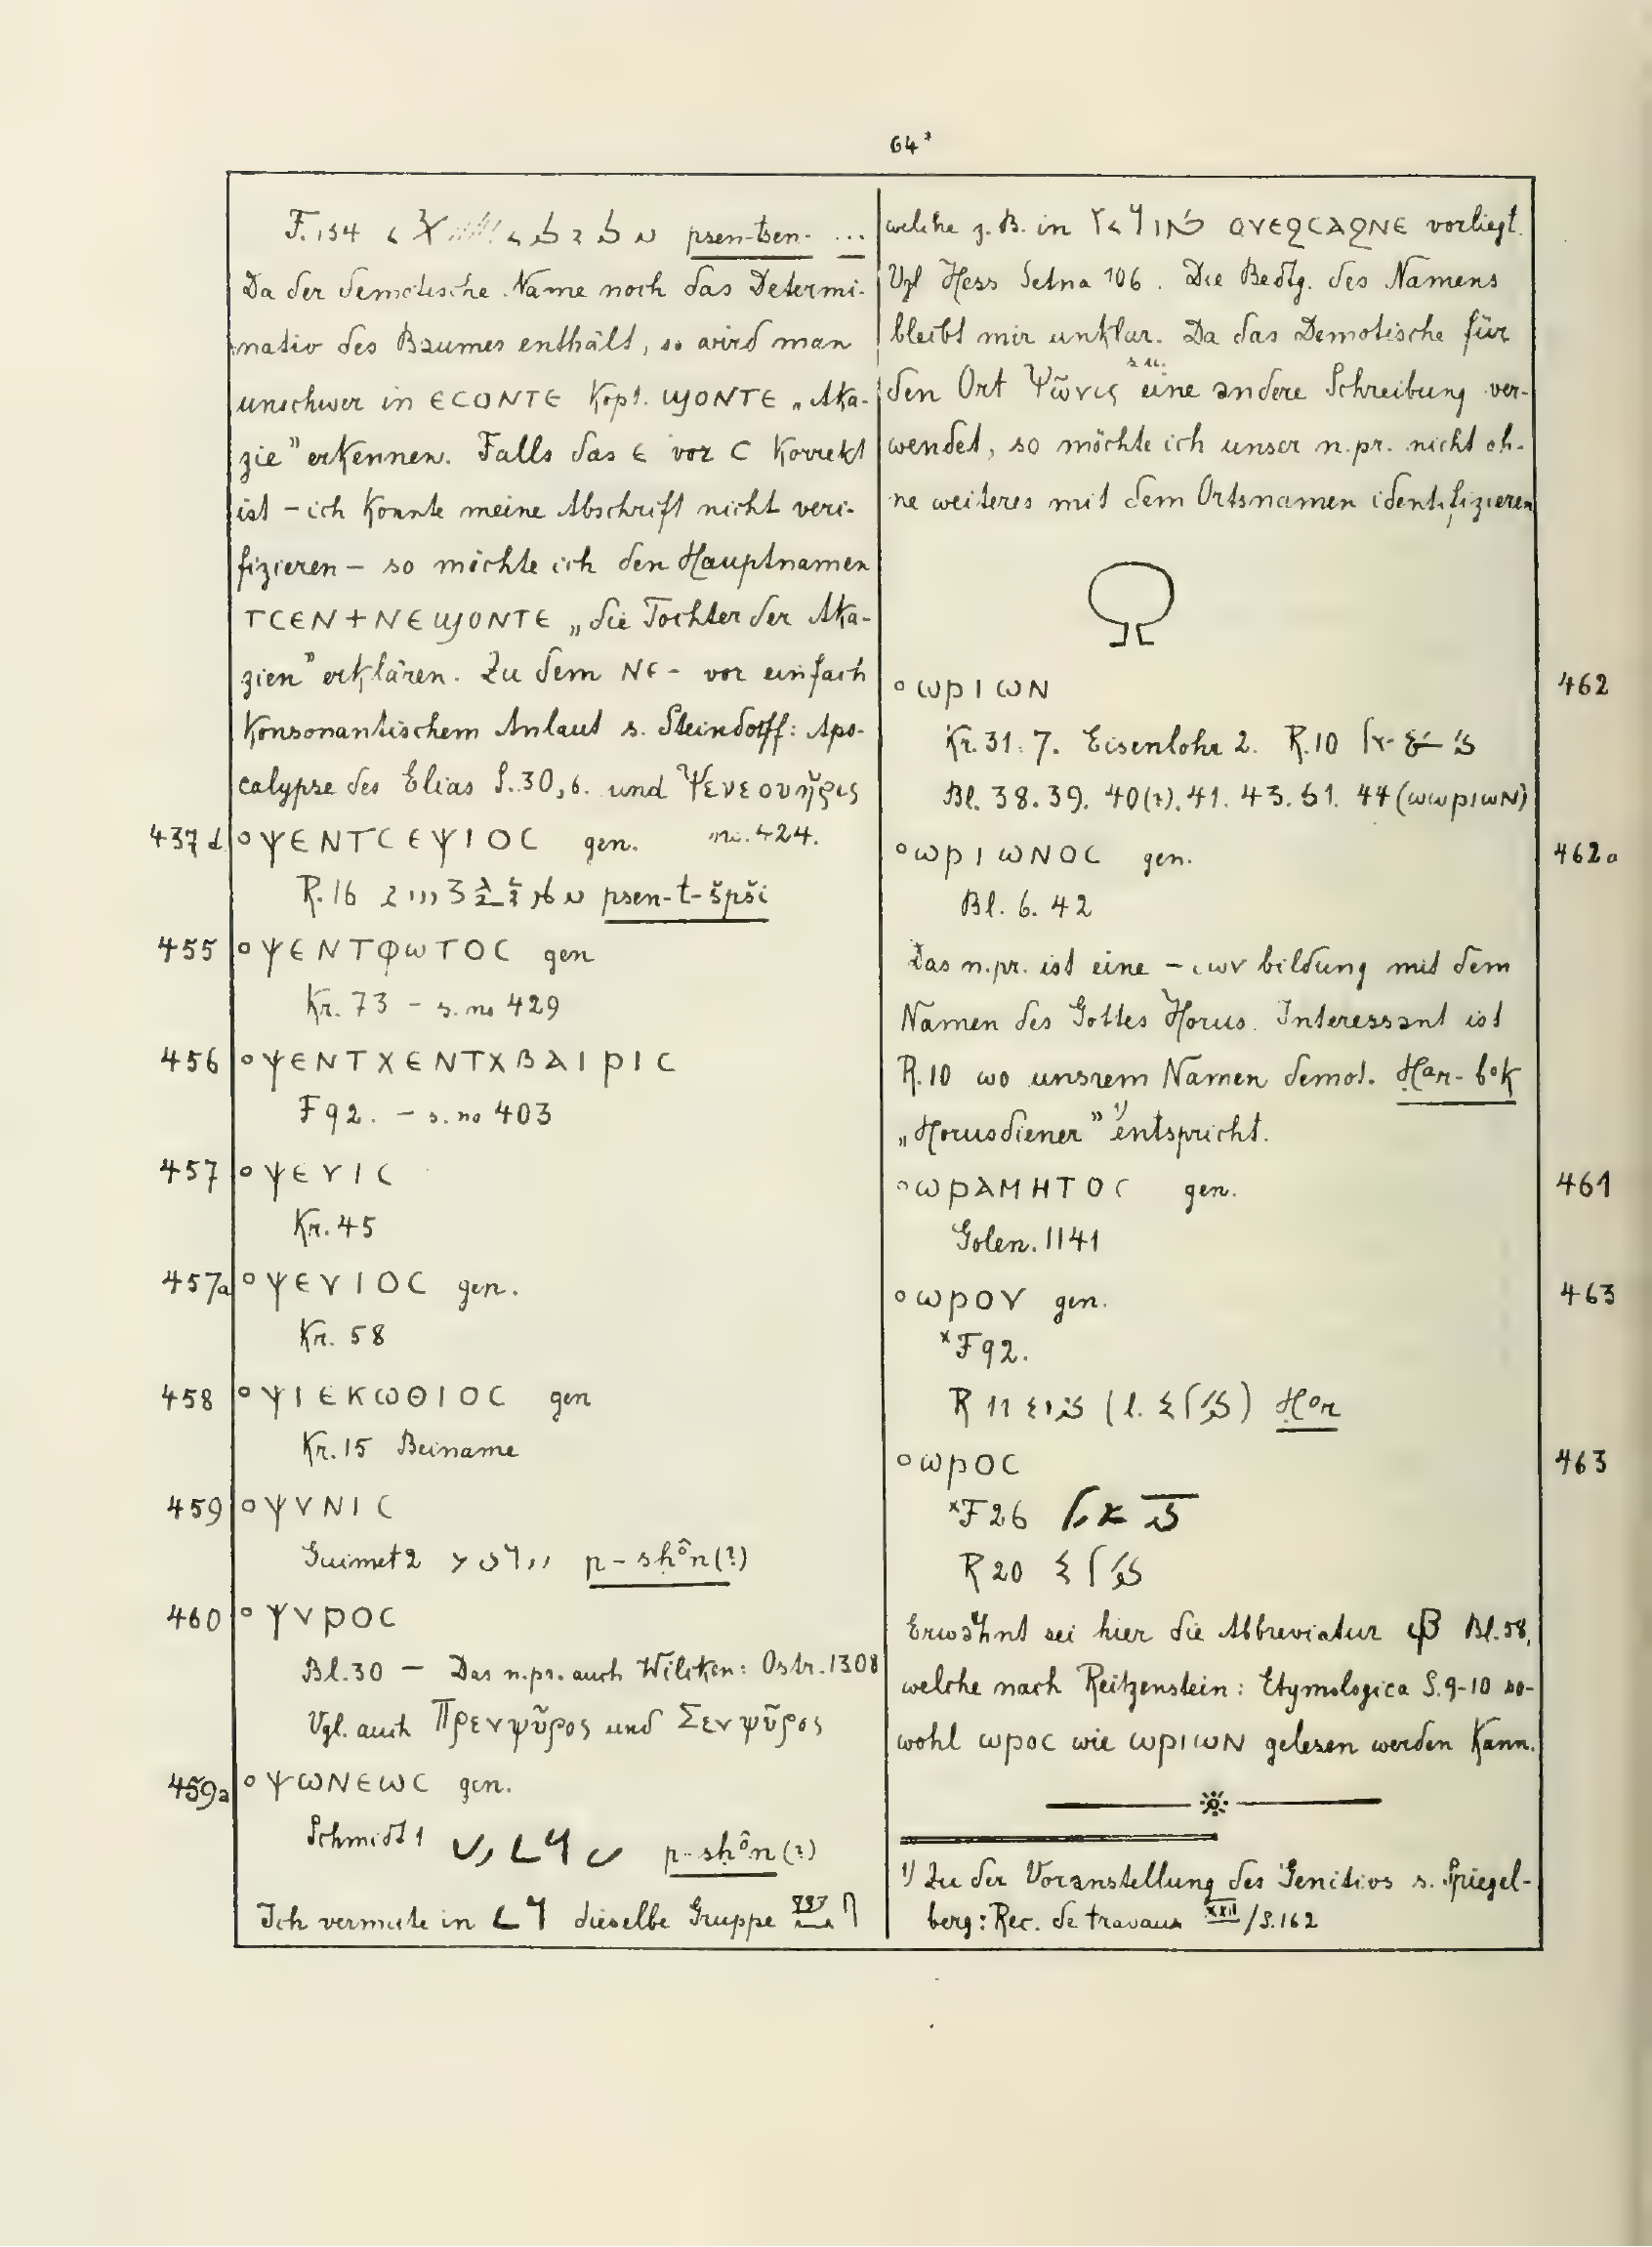 64*
F. 134 psen-tsen- ...
Da der demotische Name noch das Determi-
nativ des Baumes enthält, so wird man
unschwer in ⲈⲤⲞⲚⲦⲈ Kopt. ϢⲞⲚⲦⲈ „Aka-
zie” erkennen. Falls das Ⲉ vor Ⲥ Korrekt
ist – ich Konnte meine Abschrift nicht veri-
fizieren – so möchte ich den Hauptnamen
ⲦⲤⲈⲚ+ⲚⲈϢⲞⲚⲦⲈ „die Tochter der Aka-
zien” erklären. Zu dem ⲚⲈ- vor einfach
Konsonantischem Anlaut s. Steindorff: Apo-
calypse des Elias S. 30,6. und Ψενεουῆρις
no. 424.
437d °ΨΕΝΤCΕΨΙΟC gen.
R. 16 psen-t-špši
455 °ΨΕΝΤΦωΤΟC gen
Kr. 73 – s. no 429
456 °ΨΕΝΤΧΕΝΤΧΒΑΙΡΙC
F 92. – s. no 403
457 °ΨΕΥΙC
Kr. 45
457a °ΨΕΥΙΟC gen.
Kr. 58
458 °ΨΙΕΚωΘΙΟC gen
Kr. 15 Beiname
459 °ΨΥΝΙC
Guimet 2 p-sḥôn(?)
460 °ΨΥΡΟC
Bl. 30 – Das n.pr. auch Wilcken: Ostr. 1308
Vgl. auch Πρενψῦρος und Σενψῦρος
459a °ΨωΝΕωC gen.
Schmidt 1 p-sḥôn(?)
Ich vermute in dieselbe Gruppe
welche z.B. in ⲞⲨⲈϨⲤⲀϨⲚⲈ vorliegt.
Vgl Hess Setna 106. Die Bedtg. des Namens
bleibt mir unklar. Da das Demotische für
s.u.
den Ort Ψῶνις eine andere Schreibung ver-
wendet, so möchte ich unser n.pr. nicht oh-
ne weiteres mit dem Ortsnamen identifizieren
Ω
°ωΡΙωΝ 462
Kr. 31. 7. Eisenlohr 2. R. 10
Bl. 38. 39. 40(?). 41. 43. 51. 44 (ωωΡΙωΝ)
°ωΡΙωΝΟC gen. 462a
Bl. 6. 42
Das n.pr. ist eine -ιων bildung mit dem
Namen des Gottes Horus. Interessant ist
R. 10 wo unsrem Namen demot. Ḥar-bok
„Horusdiener” ¹⁾ entspricht.
°ωΡΑΜΗΤΟC gen. 461
Golen. 1141
°ωΡΟΥ gen. 463
ˣF 92.
R 11 (l. ) Ḥor
°ωΡΟC 463
ˣF 26
R 20
Erwähnt sei hier die Abbreviatur Bl. 58,
welche nach Reitzenstein: Etymologica S. 9-10 so-
wohl ωΡΟC wie ωΡΙωΝ gelesen werden Kann.
1) Zu der Voranstellung des Genitivs s. Spiegel-
berg: Rec. de travaux XXII/S. 162